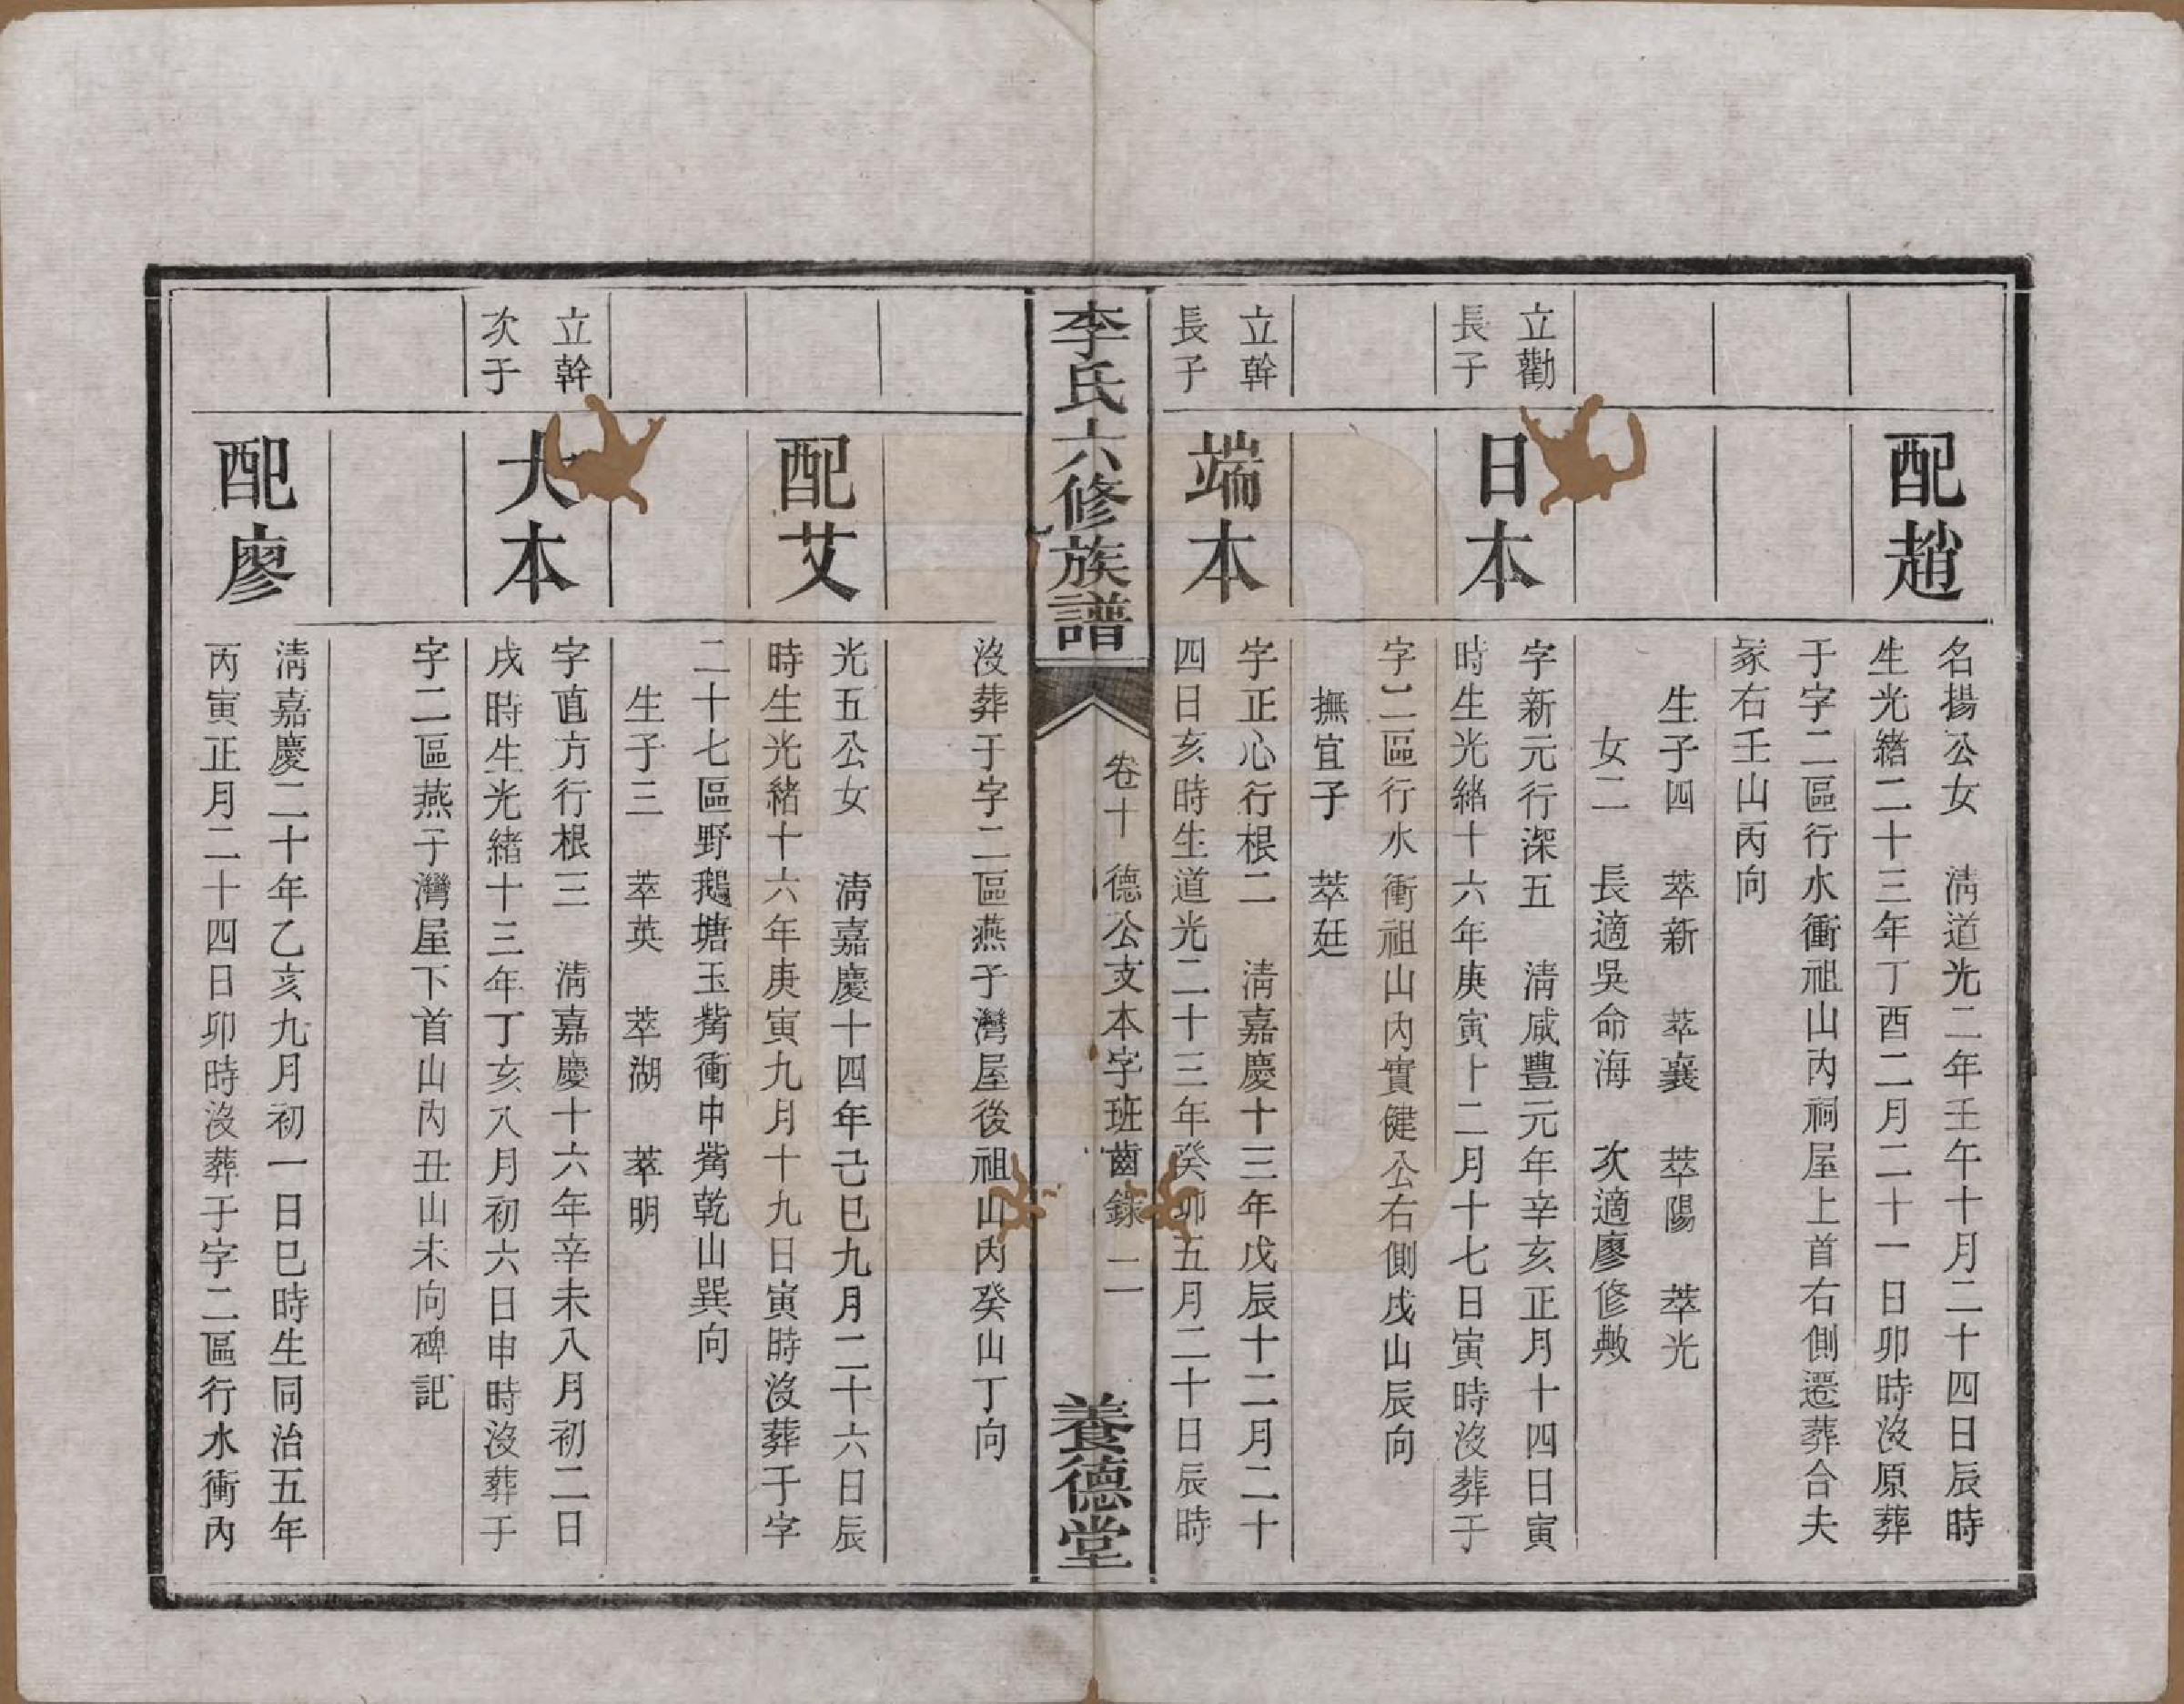 配趙
名揚公女　淸道光二年壬午十月二十四日辰時
生光緖二十三年丁酉二月二十一日卯時沒原葬
于字二區行水衝祖山內祠屋上首右側遷葬合夫
冢右壬山丙向
生子四　萃新　萃襄　萃陽　萃光
女二　長適吳命海　次適廖修敟
立勸
長子
日本
字新元行深五　淸咸豐元年辛亥正月十四日寅
時生光緖十六年庚寅十二月十七日寅時沒葬于
字二區行水衝祖山內實健公右側戌山辰向
撫宜子　萃廷
立幹
長子
端本
字正心行根二　淸嘉慶十三年戊辰十二月二十
四日亥時生道光二十三年癸卯五月二十日辰時
李氏六修族譜
卷十　德公支本字班齒錄　二
養德堂
沒葬于字二區燕子灣屋後祖山內癸山丁向
配艾
光五公女　淸嘉慶十四年己巳九月二十六日辰
時生光緖十六年庚寅九月十九日寅時沒葬于字
二十七區野鵝塘玉觜衝中觜乾山巽向
生子三　萃英　萃湖　萃明
立幹
次子
大本
字直方行根三　淸嘉慶十六年辛未八月初二日
戌時生光緖十三年丁亥八月初六日申時沒葬于
字二區燕子灣屋下首山內丑山未向碑記
配廖
淸嘉慶二十年乙亥九月初一日巳時生同治五年
丙寅正月二十四日卯時沒葬于字二區行水衝內